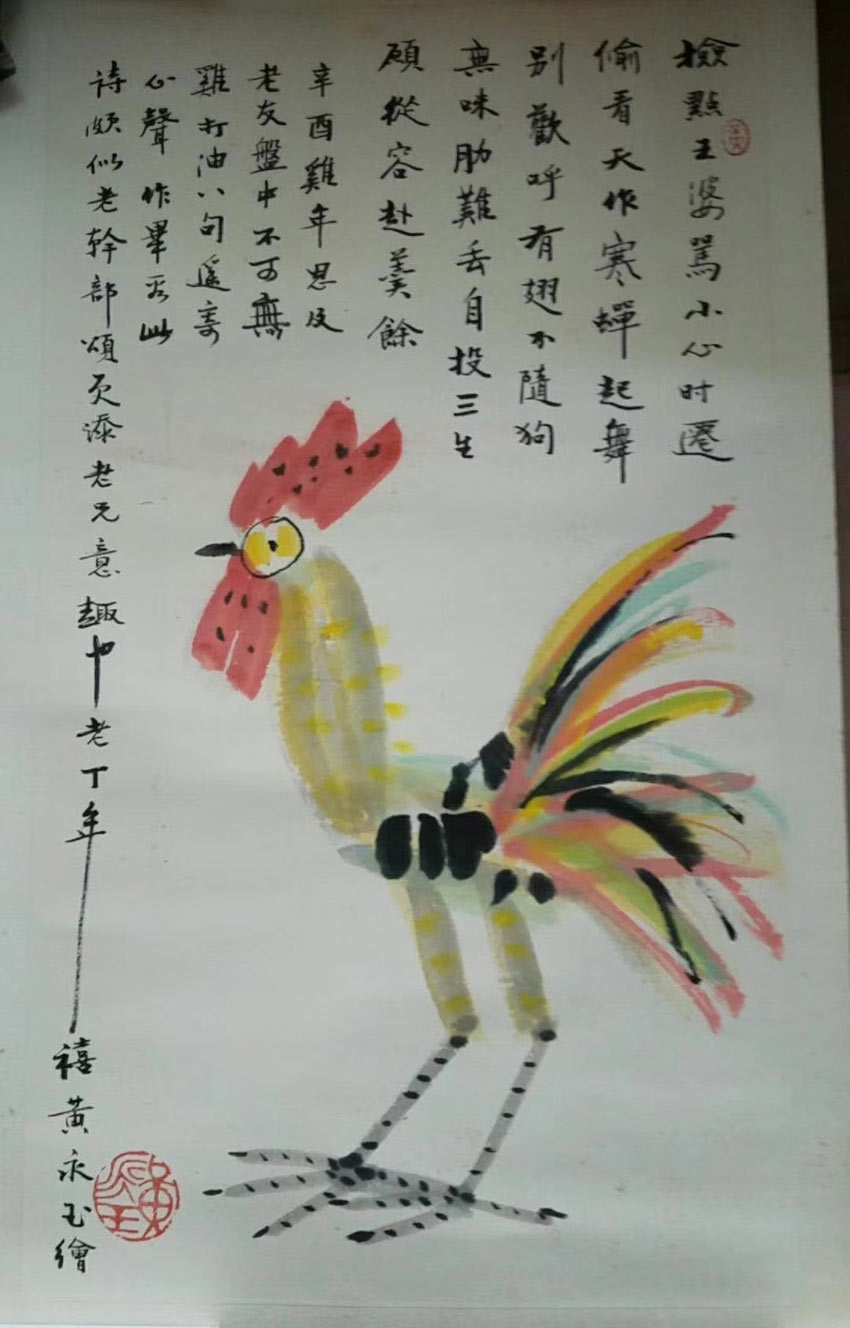 檢點王婆罵小心时遷
偷看天作寒蟬起舞
别歡呼有翅不隨狗
無味肋難丢自投三生
頋從容赴羹餘
辛酉雞年思及
老友盤中不可無
雞打油八句遥寄
心聲作畢看此
詩頗似老幹部頌更添老兄意趣也老丁年
禧黄永玉繪